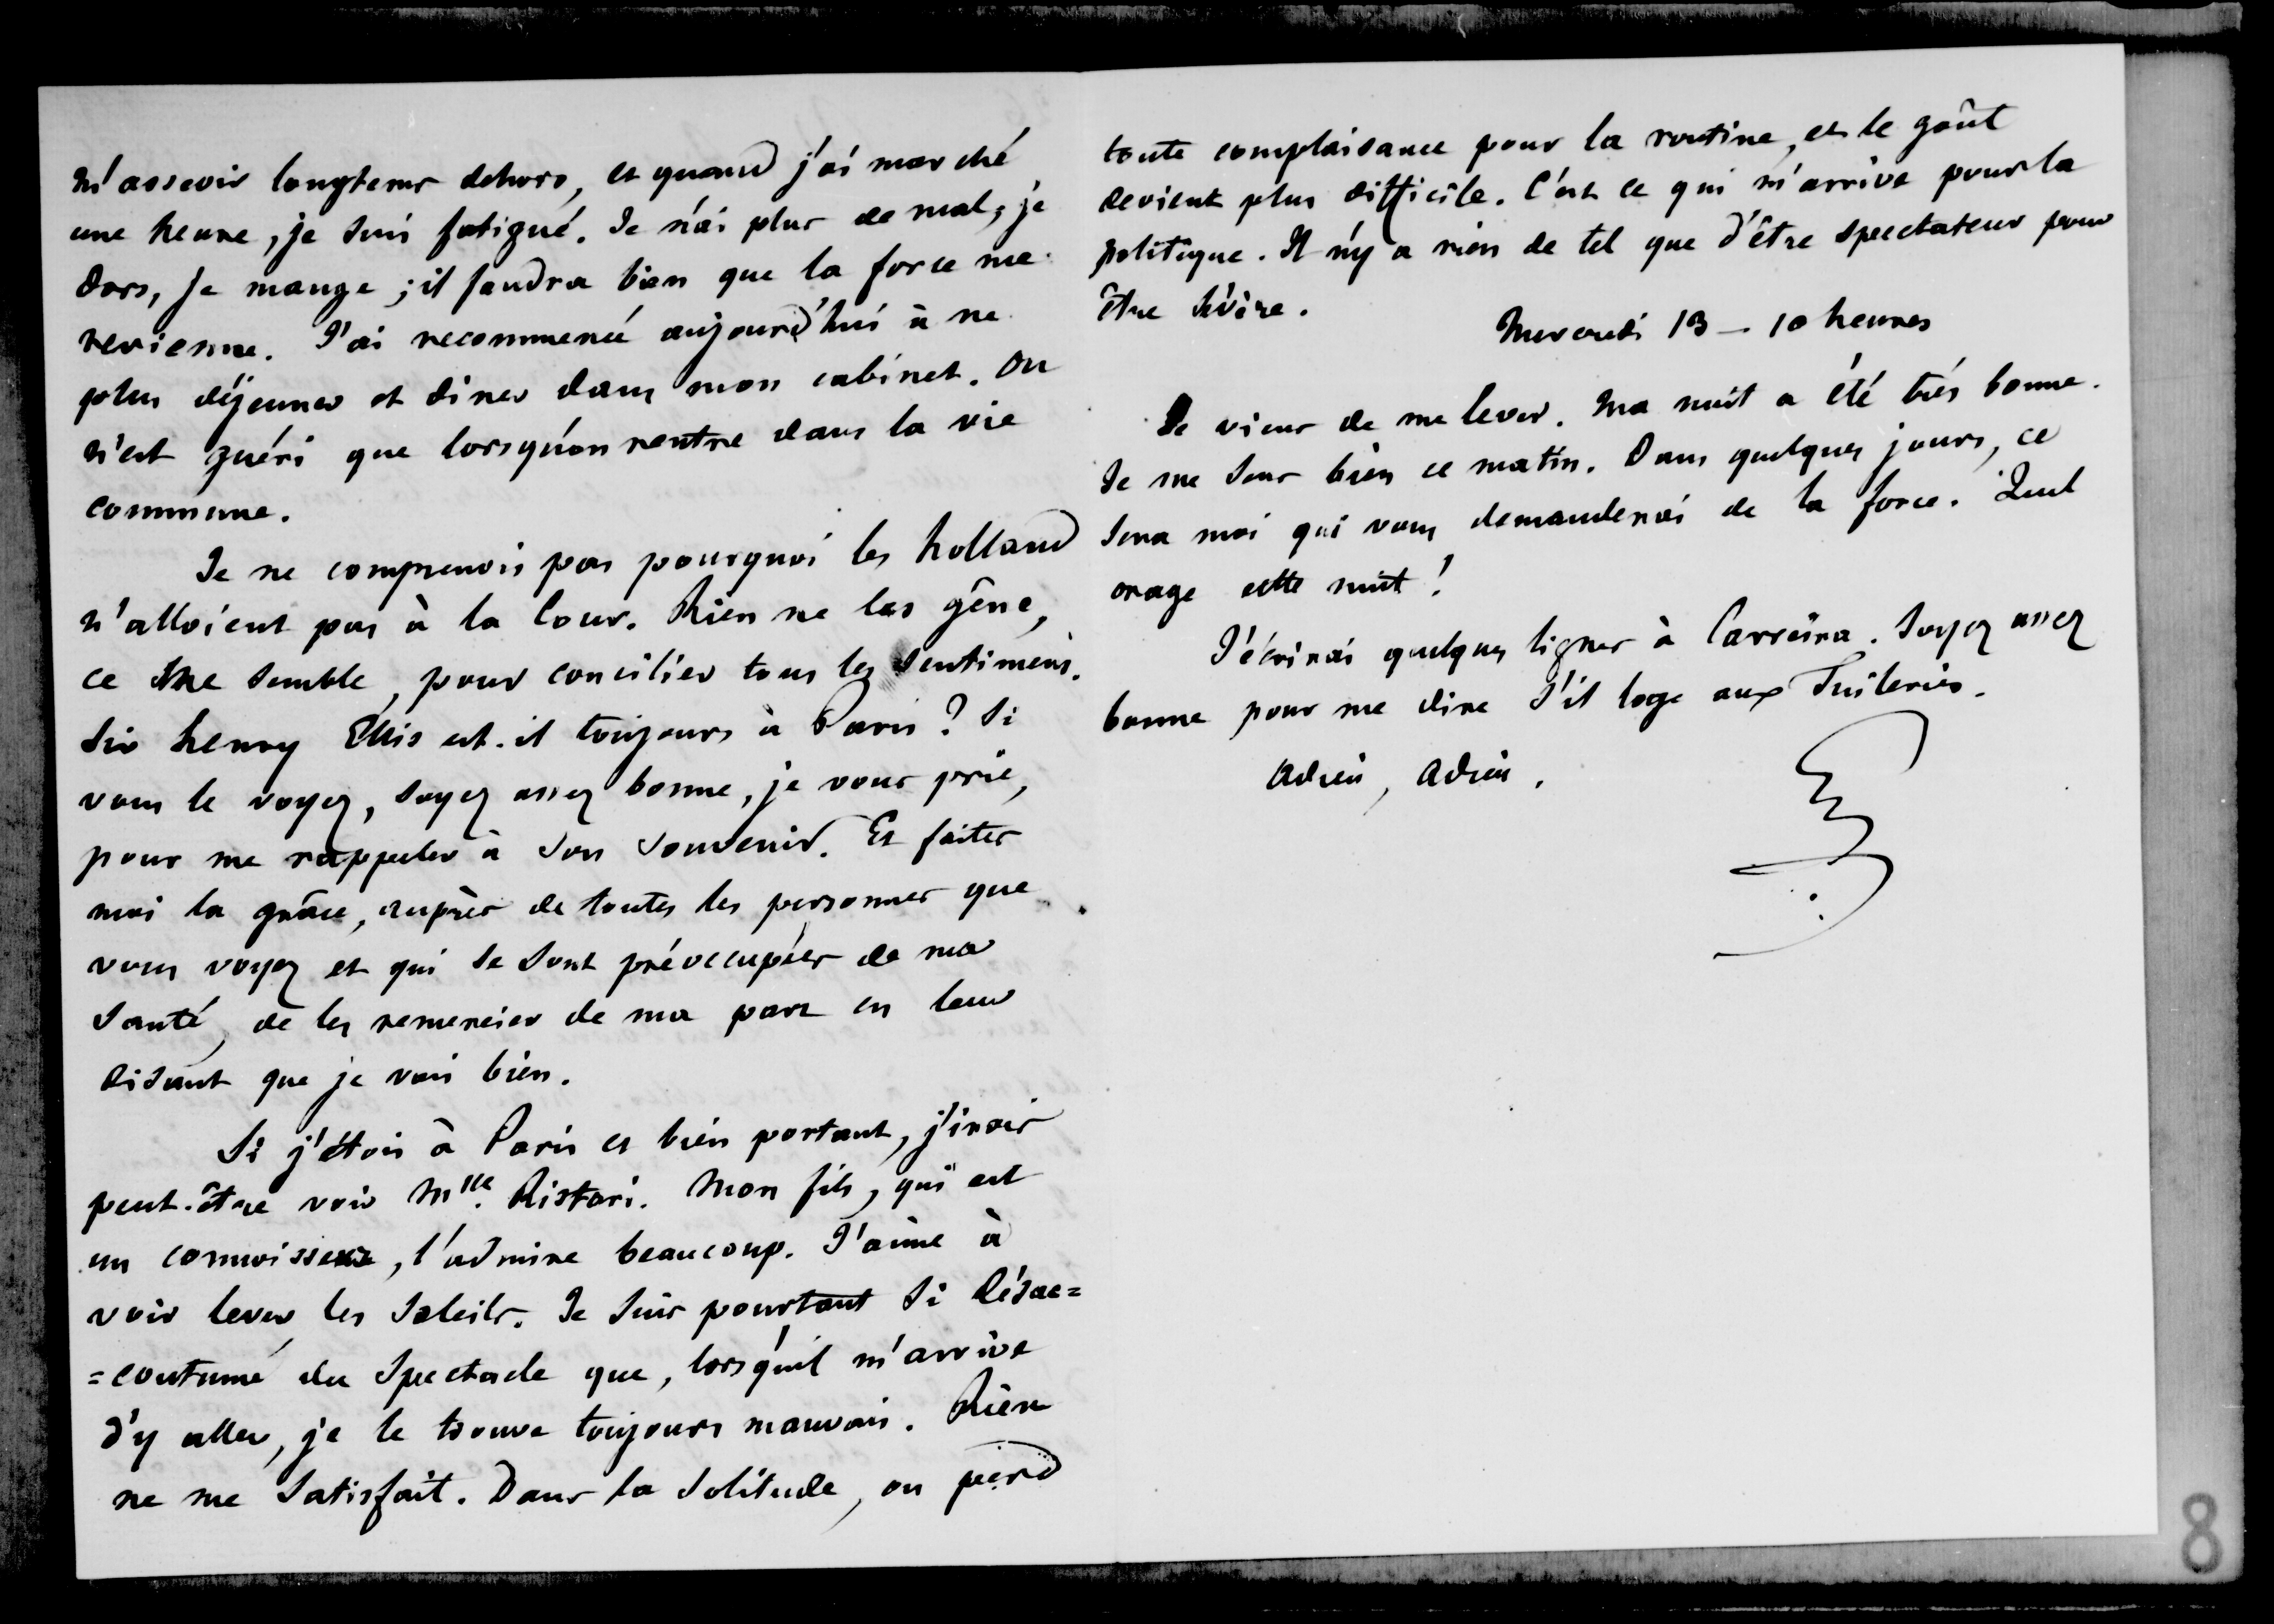 m'asseoir longtems dehors, et quand j'ai marché
une heure, je suis fatigué. Je n'ai plus de mal; je
dors, je mange; il faudra bien que la force me
revienne. J'ai recommencé aujourd'hui à ne
plus déjeuner et diner dans mon cabinet. On
n'est guéri que lorsqu'on rentre dans la vie
commune.
Je ne comprenois pas pourquoi les holland
n'alloient pas à la Cour. Rien ne les gêne,
ce me semble, pour concilier tous les sentimens.
Sir henry Ellis est-il toujours à Paris? Si
vous le voyez, soyez assez bonne, je vous prie,
pour me rappeler à son souvenir. Et faites
moi la grâce, auprès de toutes les personnes que
vous voyez et qui se sont préoccupées de ma
santé, de les remercier de ma part en leur
disant que je vais bien.
Si j'étois à Paris et bien portant, j'irois
peut-être voir Mlle. Ristori. Mon fils, qui est
un connoisseur, l'admire beaucoup. J'aime à
voir lever les soleils. Je suis pourtant si désac=
=coutumé du spectacle que, lorsqu'il m'arrive
d'y aller, je le trouve toujours mauvais. Rien
ne me satisfait. Dans la solitude, on perd
toute complaisance pour la routine, et le goût
devient plus difficile. C'est ce qui m'arrive pour la
politique. Il n'y a rien de tel que d'être spectateur pour
être sévère.
Mercredi 13 - 10 heures
Je viens de me lever. Ma nuit a été très bonne.
Je me sens bien ce matin. Dans quelques jours, ce
sera moi qui vous demanderai de la force. Quel
orage cette nuit!
J'écrirai quelques lignes à Carreira. Soyez assez
bonne pour me dire s'il loge aux Tuileries.
Adieu, Adieu.
8